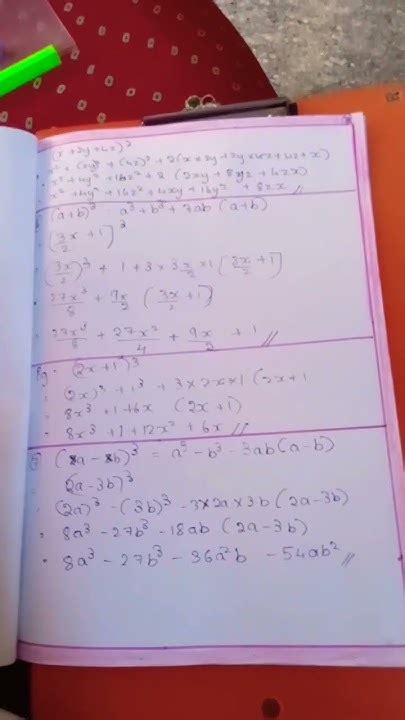 (x+2y+4z)²
x² + (2y)² + (4z)² + 2(x×2y+2y×4z+4z×x)
= x² + 4y² + 16z² + 2 (2xy + 8yz + 4zx)
= x² + 4y² + 16z² + 4xy + 16yz + 8zx //
(a+b)³ a³+b³+3ab (a+b)
= [3x/2 + 1]³
(3x/2)³ + 1 + 3 × 3x/2 × 1 [3x/2 + 1]
27x³/8 + 9x/2 (3x/2 + 1)
= 27x³/8 + 27x²/4 + 9x/2 + 1 //
Eg - (2x+1)³
(2x)³ + 1³ + 3×2x×1 (2x+1
= 8x³ + 1 + 6x (2x+1)
= 8x³ + 1 + 12x² + 6x //
(a - b)³ = a³ - b³ - 3ab(a-b)
= (2a-3b)³
(2a)³ - (3b)³ - 3×2a×3b (2a-3b)
= 8a³ - 27b³ - 18ab (2a-3b)
= 8a³ - 27b³ - 36a²b - 54ab² //